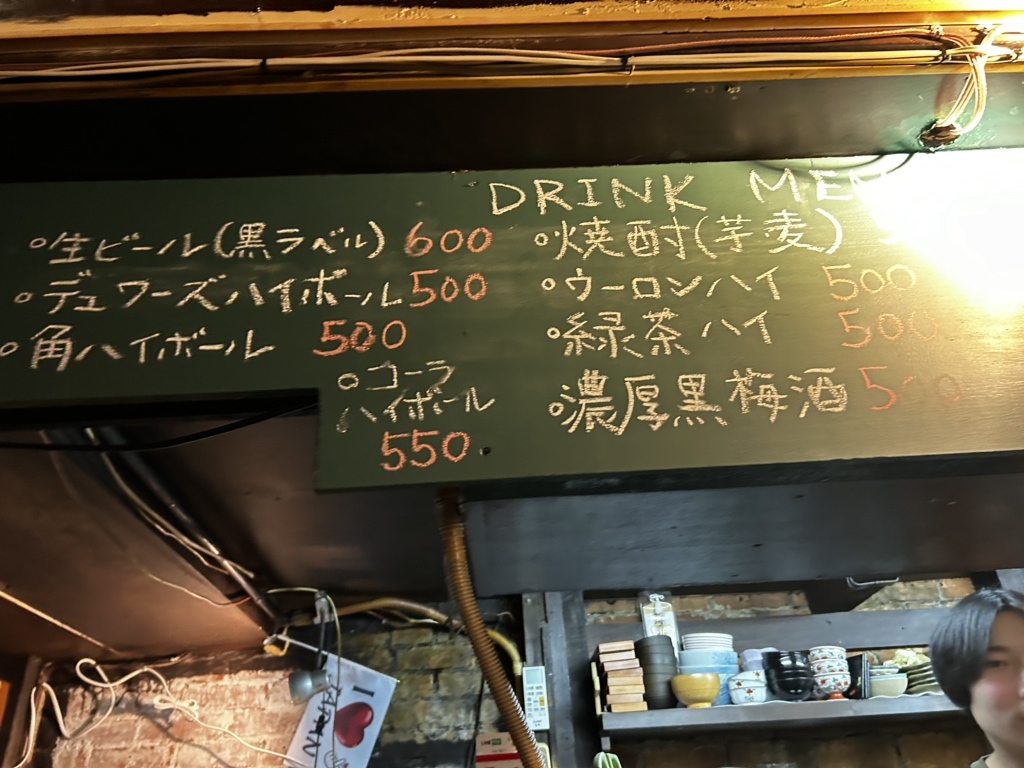 DRINK MEN
○生ビール(黒ラベル) 600
○デュワーズハイボール500
○角ハイボール 500
○コーラ
ハイボール
550
○焼酎(芋麦)
○ウーロンハイ 500
○緑茶ハイ 500
○濃厚黒梅酒 500
I